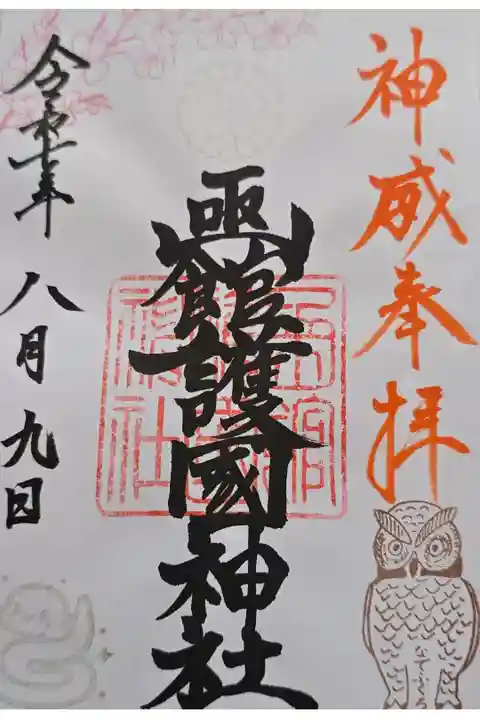 神威奉拝
凾館護國神社
令和七年八月九日